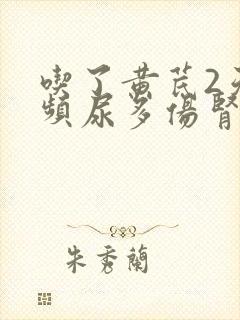 喫了黄芪2天
頻尿多傷腎
朱秀蘭